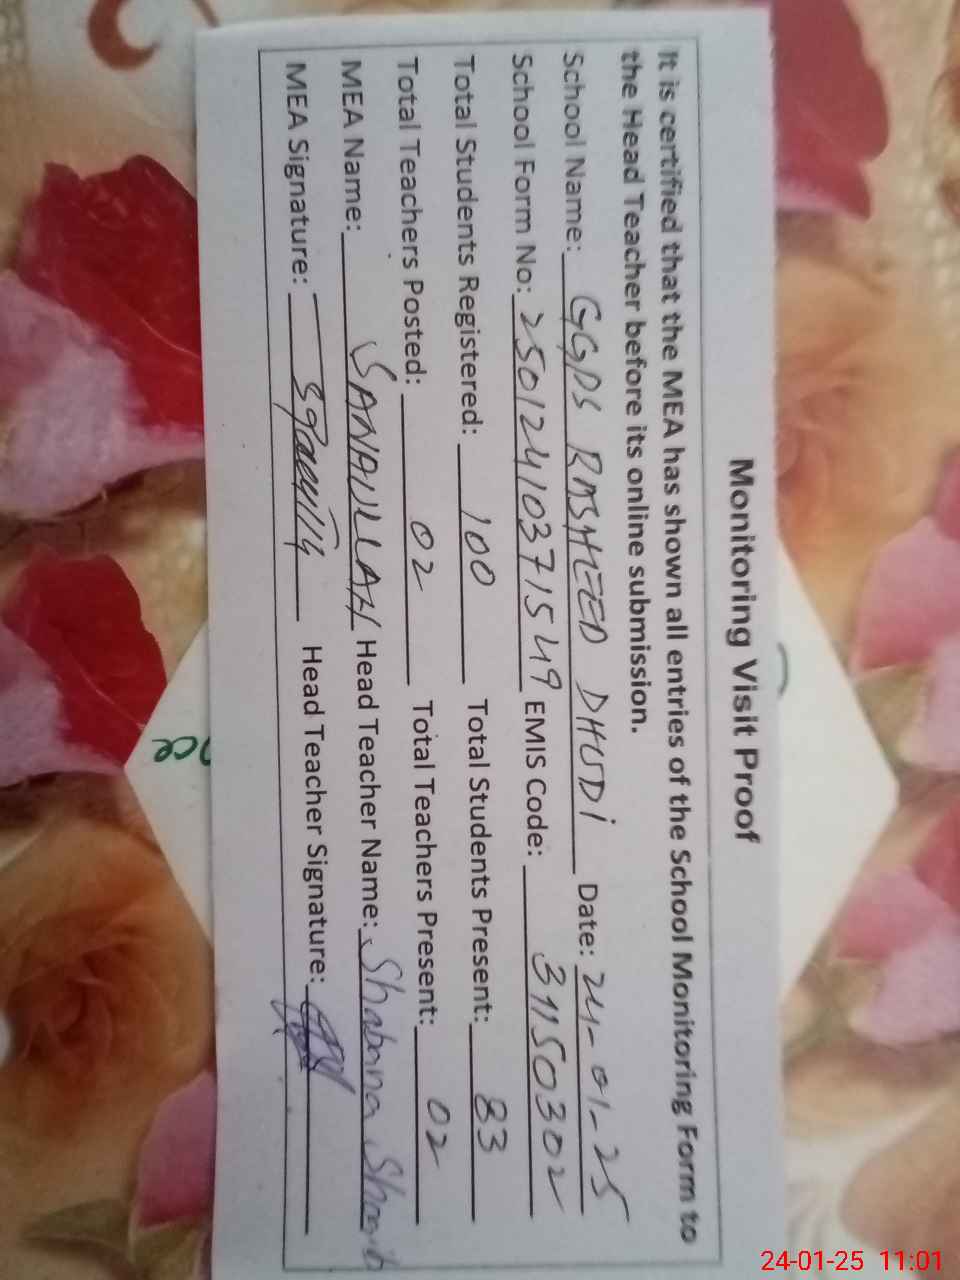 Monitoring Visit Proof
It is certified that the MEA has shown all entries of the School Monitoring Form to
the Head Teacher before its online submission.
School Name: GGPS RASHEED DHUDi Date: 24-01-25
School Form No: 25012410371549 EMIS Code: 31150302
Total Students Registered: 100 Total Students Present: 83
Total Teachers Posted: 02 Total Teachers Present: 02
MEA Name: SANAULLAH Head Teacher Name: Shabana
MEA Signature: Head Teacher Signature:
ce
24-01-25 11:01